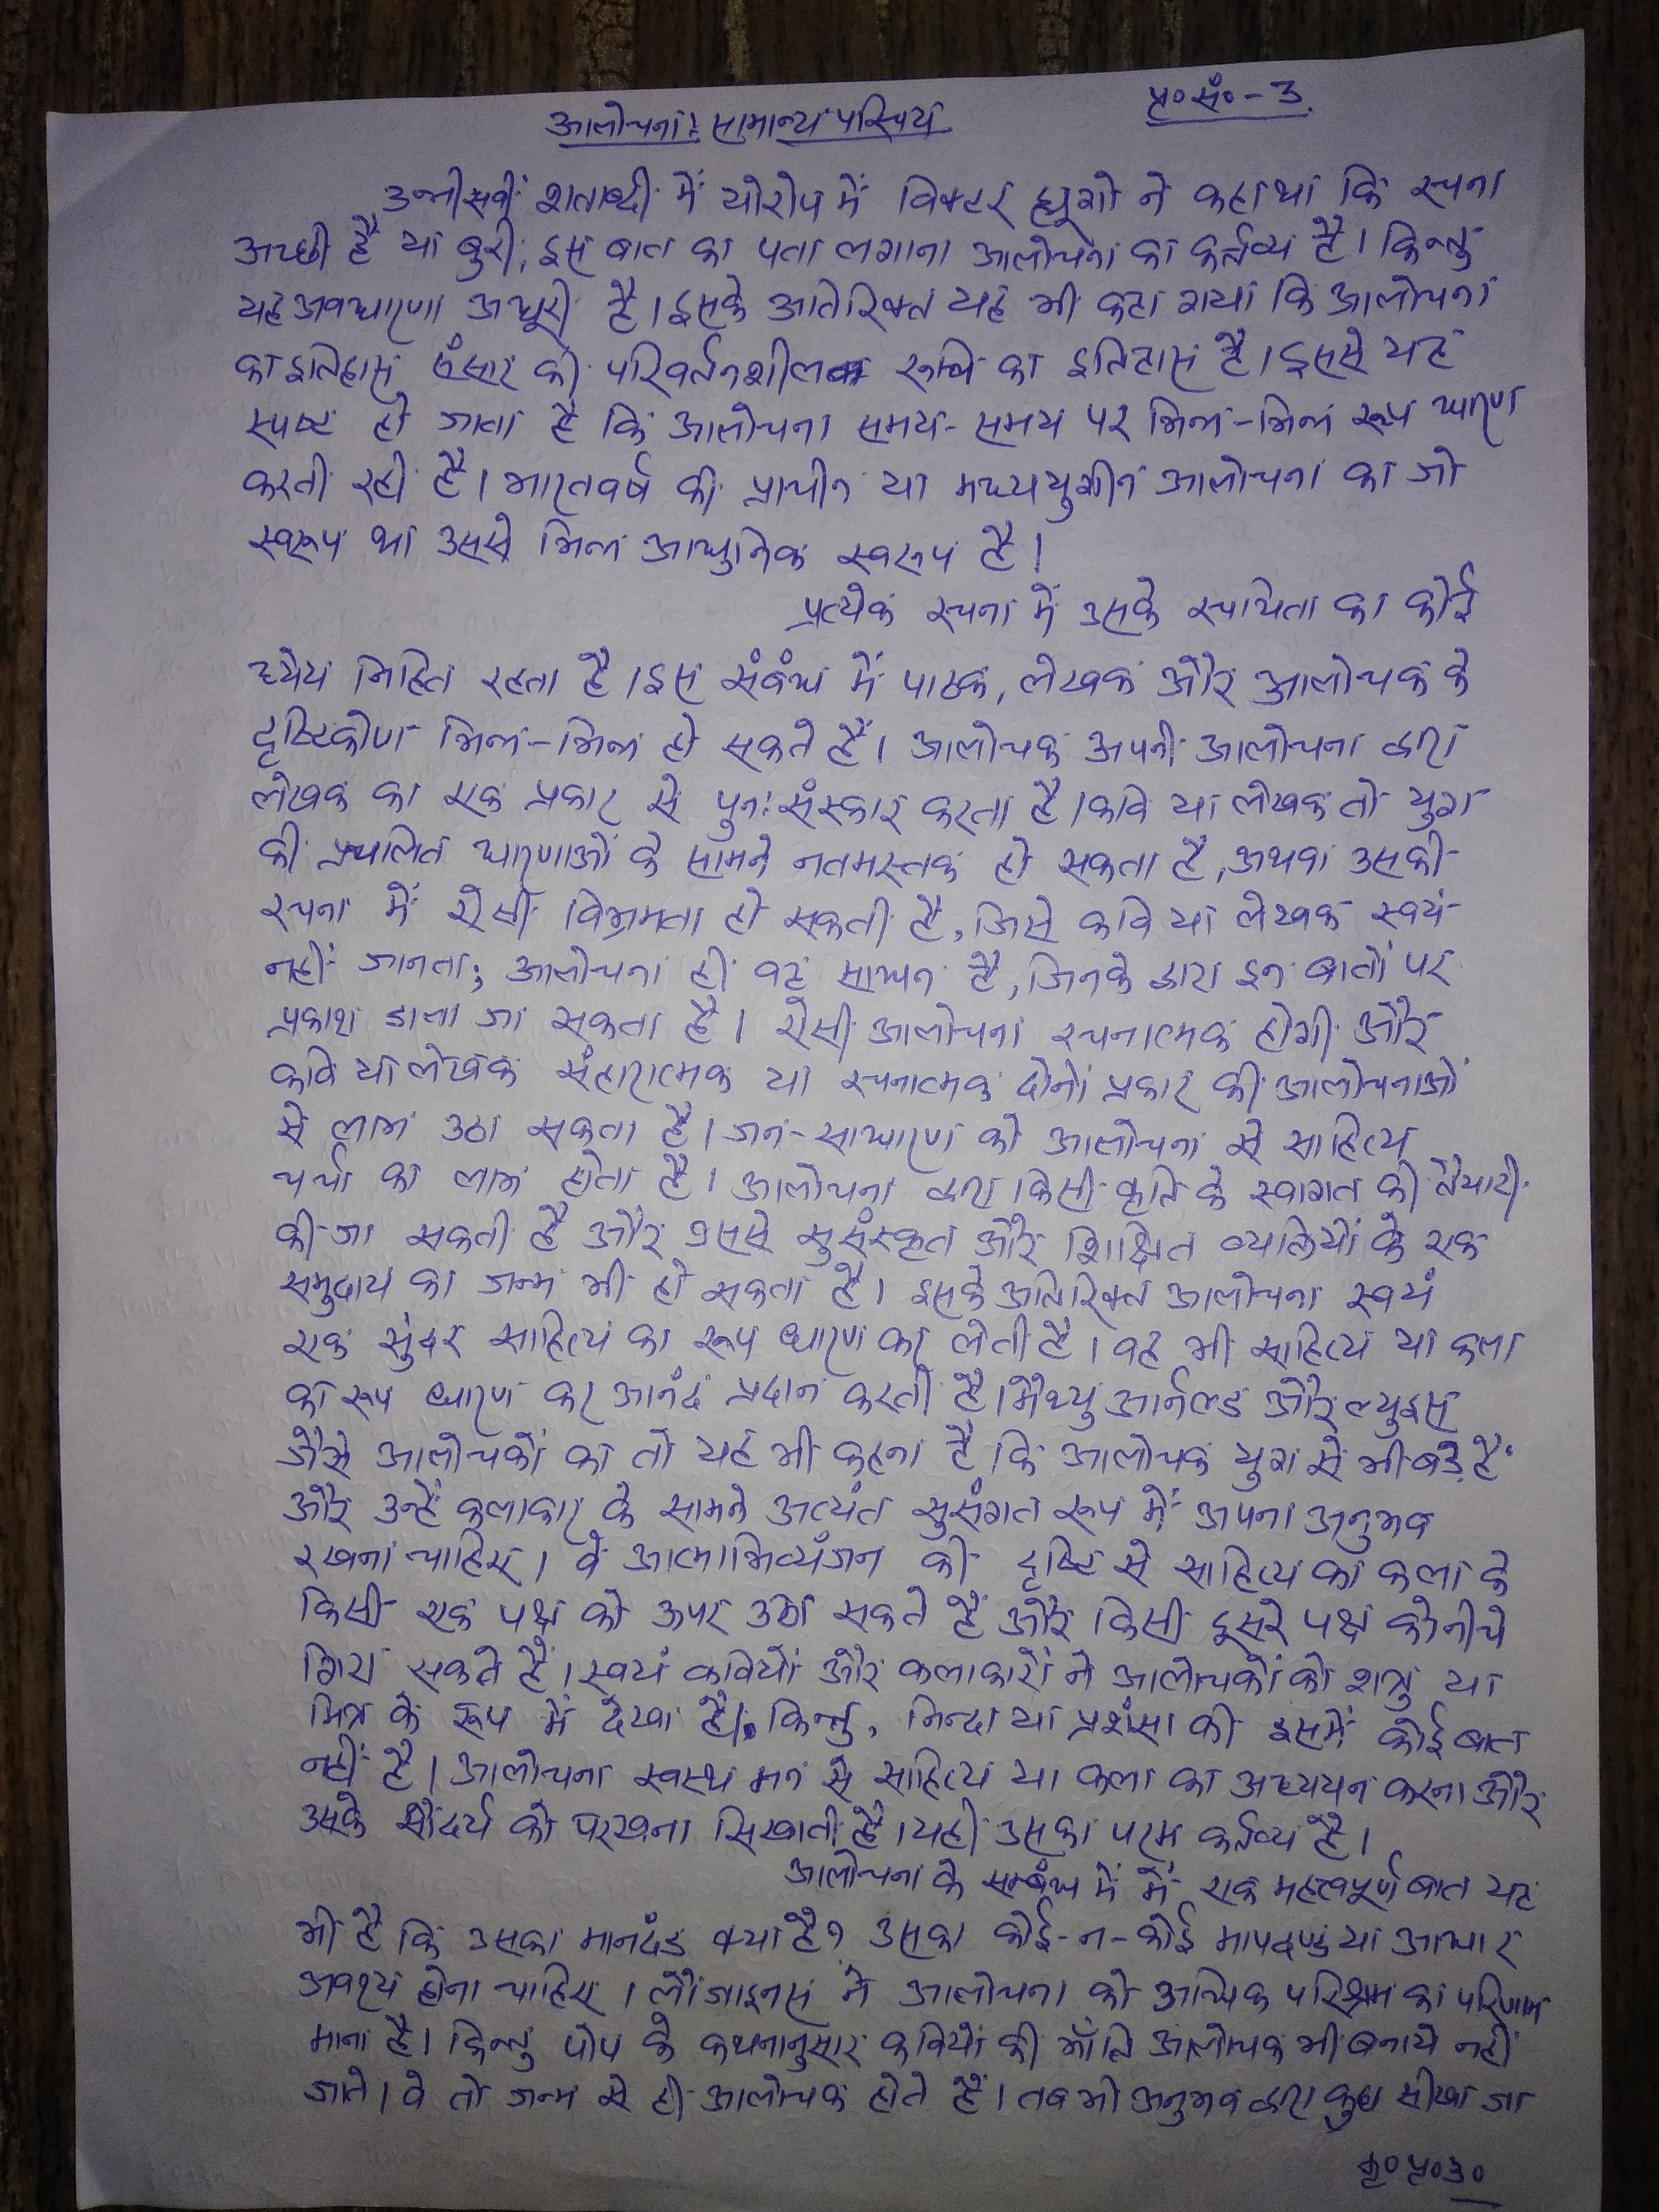 प्र० सं० - 3.
आलोचना : सामान्य परिचय
उन्नीसवीं शताब्दी में योरोप में विक्टर ह्यूगो ने कहा था कि रचना
अच्छी है या बुरी, इस बात का पता लगाना आलोचना का कर्तव्य है। किन्तु
यह अवधारणा अधूरी है। इसके अतिरिक्त यह भी कहा गया कि आलोचना
का इतिहास संसार की परिवर्तनशील रूचि का इतिहास है। इससे यह
स्पष्ट हो जाता है कि आलोचना समय-समय पर भिन्न-भिन्न रूप धारण
करती रही है। भारतवर्ष की प्राचीन या मध्ययुगीन आलोचना का जो
स्वरूप था उससे भिन्न आधुनिक स्वरूप है।
प्रत्येक रचना में उसके रचयिता का कोई
ध्येय निहित रहता है। इस संबंध में पाठक, लेखक और आलोचक के
दृष्टिकोण भिन्न-भिन्न हो सकते हैं। आलोचक अपनी आलोचना द्वारा
लेखक का एक प्रकार से पुनः संस्कार करता है। कवि या लेखक तो युग
की प्रचलित धारणाओं के सामने नतमस्तक हो सकता है, अथवा उसकी
रचना में ऐसी विभ्रमता हो सकती है, जिसे कवि या लेखक स्वयं
नहीं जानता; आलोचना ही वह साधन है, जिनके द्वारा इन बातों पर
प्रकाश डाला जा सकता है। ऐसी आलोचना रचनात्मक होगी और
कवि या लेखक संहारात्मक या रचनात्मक दोनों प्रकार की आलोचनाओं
से लाभ उठा सकता है। जन-साधारण को आलोचना से साहित्य
चर्चा का लाभ होता है। आलोचना द्वारा किसी कृति के स्वागत की तैयारी
की जा सकती है और उससे सुसंस्कृत और शिक्षित व्यक्तियों के एक
समुदाय का जन्म भी हो सकता है। इसके अतिरिक्त आलोचना स्वयं
एक सुंदर साहित्य का रूप धारण कर लेती है। वह भी साहित्य या कला
का रूप धारण कर आनंद प्रदान करती है। मैथ्यु आर्नल्ड और ल्युइस
जैसे आलोचकों का तो यह भी कहना है कि आलोचक युग से भी बड़े हैं
और उन्हें कलाकार के सामने अत्यंत सुसंगत रूप में अपना अनुभव
रखना चाहिए। वे आत्माभिव्यंजन की दृष्टि से साहित्य का कला के
किसी एक पक्ष को ऊपर उठा सकते हैं और किसी दूसरे पक्ष को नीचे
गिरा सकते हैं। स्वयं कवियों और कलाकारों ने आलोचकों को शत्रु या
मित्र के रूप में देखा है। किन्तु, निन्दा या प्रशंसा की इसमें कोई बात
नहीं है। आलोचना स्वस्थ मन से साहित्य या कला का अध्ययन करना और
उसके सौंदर्य को परखना सिखाती है। यही उसका परम कर्तव्य है।
आलोचना के सम्बंध में में एक महत्वपूर्ण बात यह
भी है कि उसका मानदंड क्या है? उसका कोई-न-कोई मापदण्ड या आधार
अवश्य होना चाहिए। लौंजाइनस ने आलोचना को अधिक परिश्रम का परिणाम
माना है। किन्तु पोप के कथनानुसार कवियों की भाँति आलोचक भी बनाये नहीं
जाते। वे तो जन्म से ही आलोचक होते हैं। तब भी अनुभव द्वारा कुछ सीखा जा
कृ०पृ०उ०